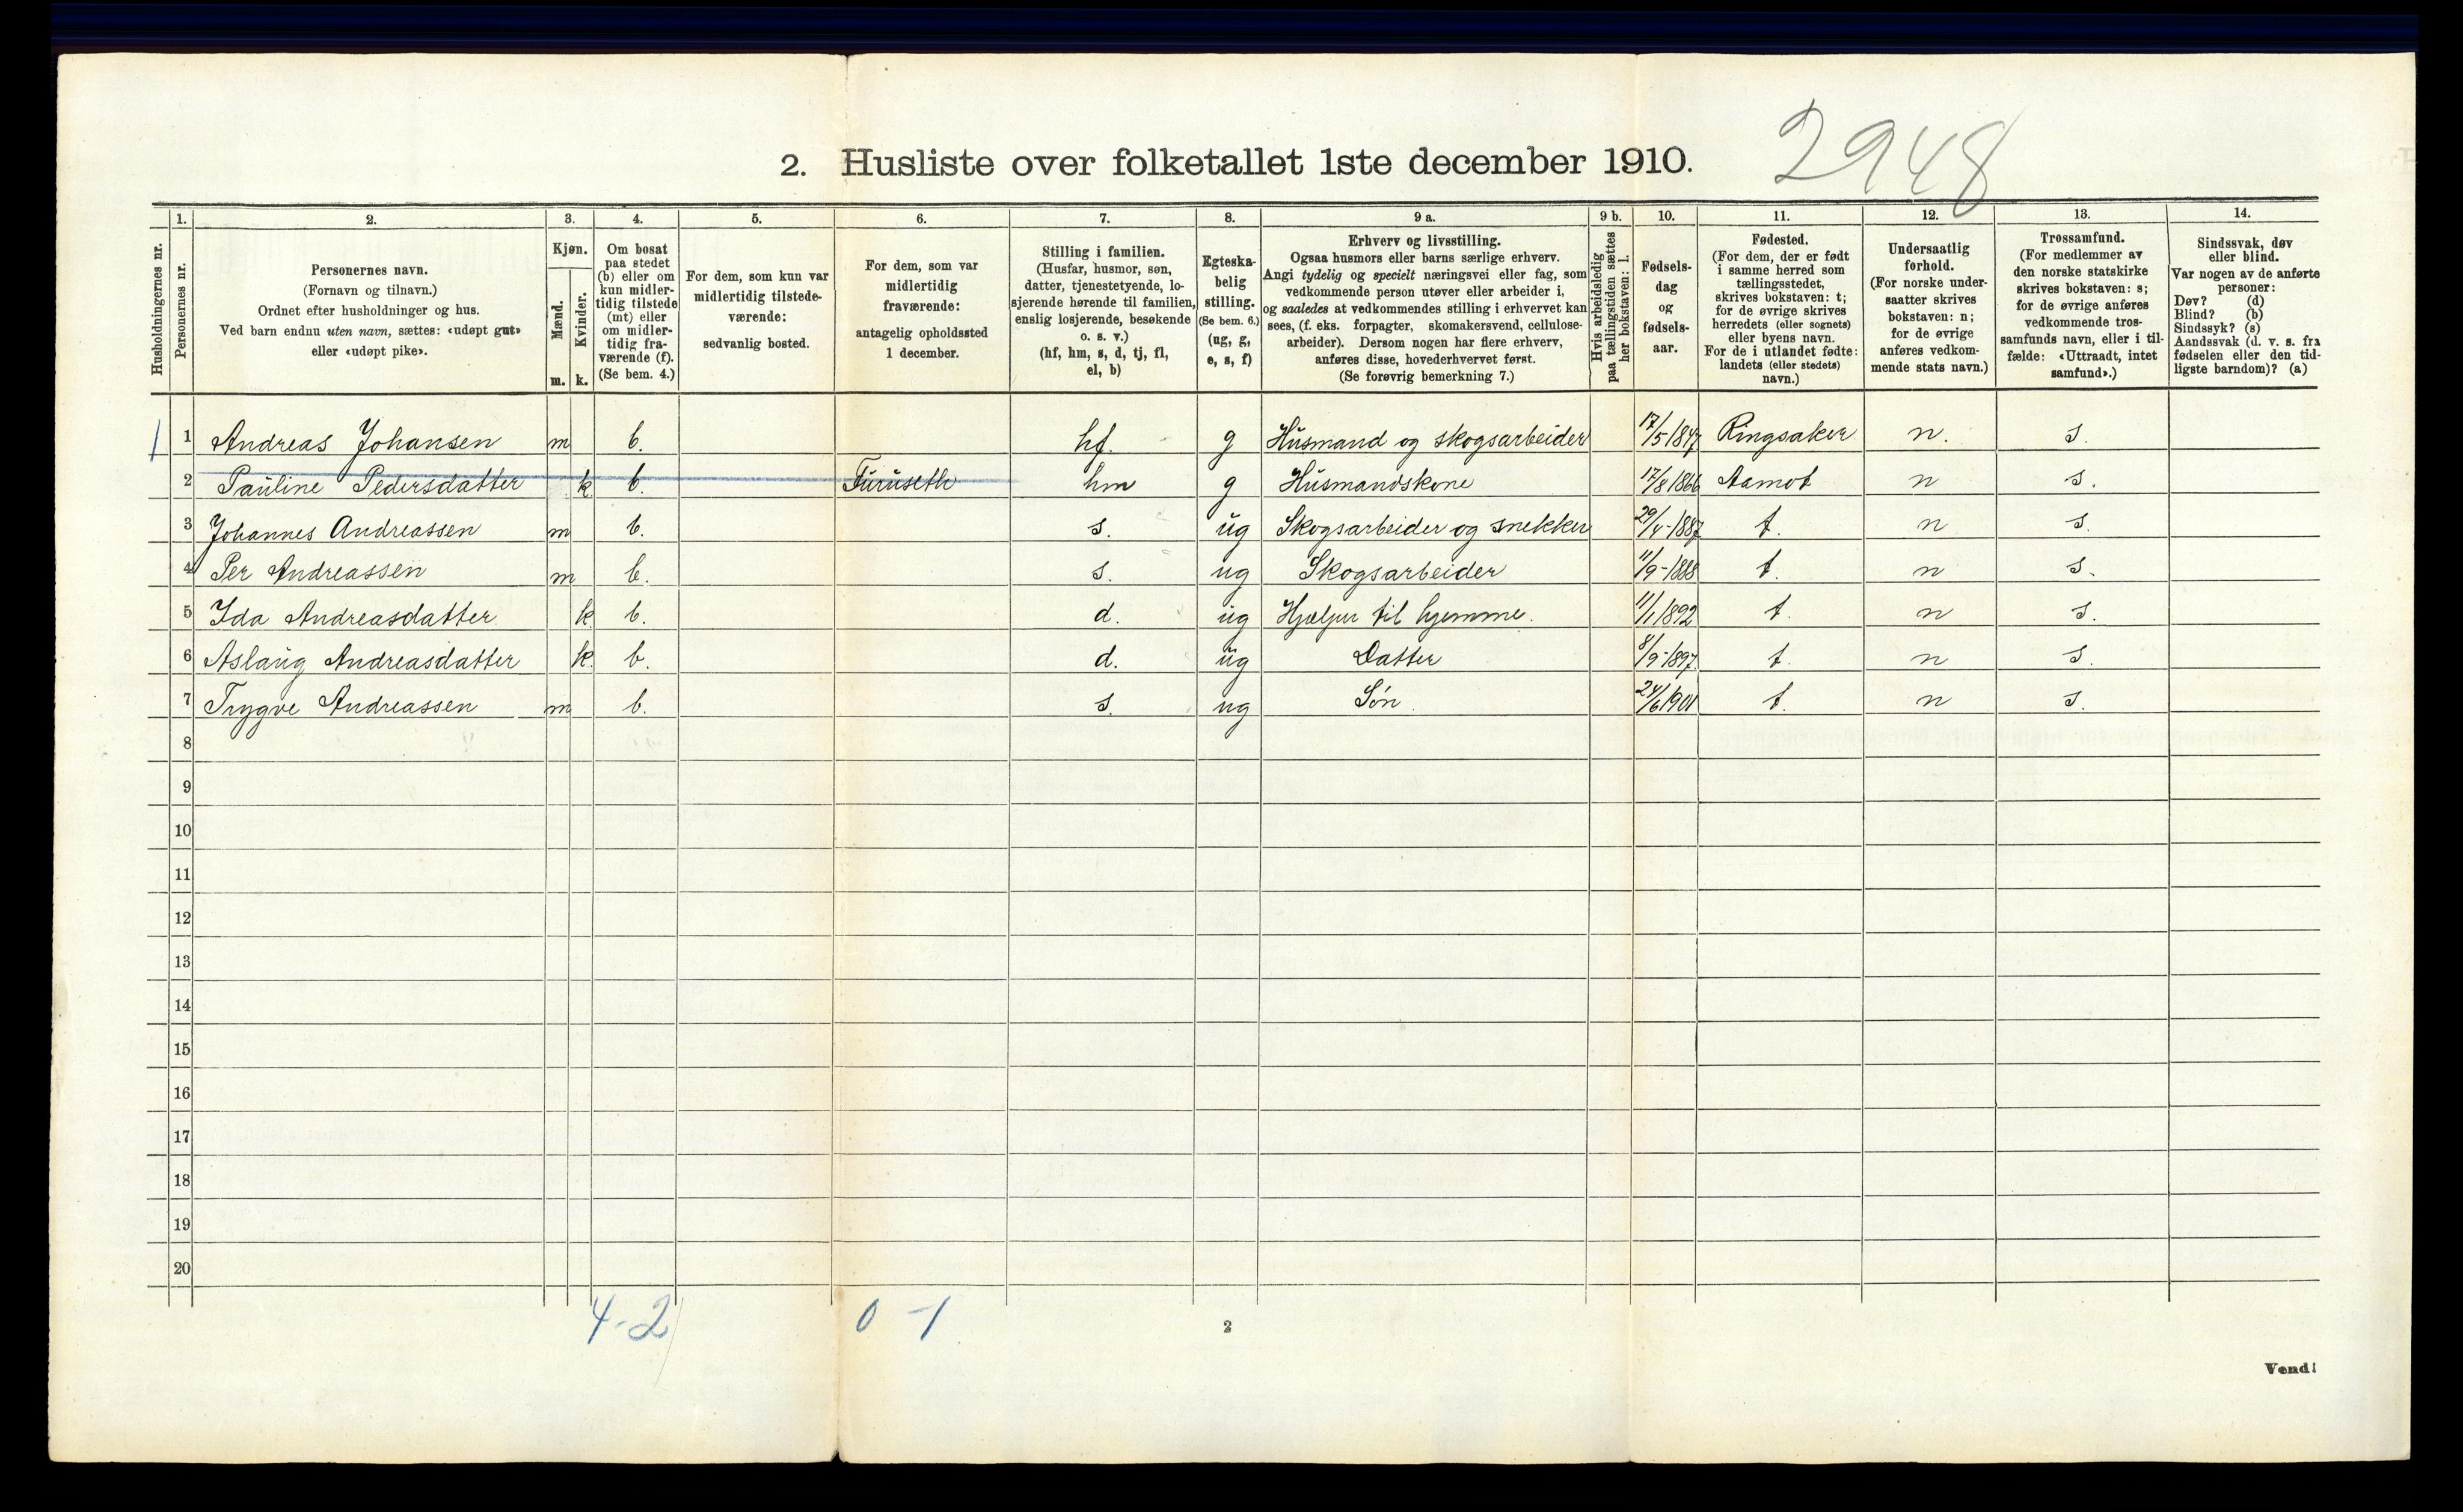 2948
2. Husliste over folketallet 1ste december 1910.
Husholdningernes nr.
1.
Personernes nr.
2.
Personernes navn.
(Fornavn og tilnavn.)
Ordnet efter husholdninger og hus.
Ved barn endnu uten navn, sættes: «udøpt gut»
eller «udøpt pike».
3.
Kjøn.
Mænd.
Kvinder.
m. k.
4.
Om bosat
paa stedet
(b) eller om
kun midler-
tidig tilstede
(mt) eller
om midler-
tidig fra-
værende (f).
(Se bem. 4.)
5.
For dem, som kun var
midlertidig tilstede-
værende:
sedvanlig bosted.
6.
For dem, som var
midlertidig
fraværende:
antagelig opholdssted
1 december.
7.
Stilling i familien.
(Husfar, husmor, søn,
datter, tjenestetyende, lo-
sjerende hørende til familien,
enslig losjerende, besøkende
o. s. v.)
(hf, hm, s, d, tj, fl,
el, b)
8.
Egteska-
belig
stilling.
(Se bem. 6.)
(ug, g,
e, s, f)
9 a.
Erhverv og livsstilling.
Ogsaa husmors eller barns særlige erhverv.
Angi tydelig og specielt næringsvei eller fag, som
vedkommende person utøver eller arbeider i,
og saaledes at vedkommendes stilling i erhvervet kan
sees, (f. eks. forpagter, skomakersvend, cellulose-
arbeider). Dersom nogen har flere erhverv,
anføres disse, hovederhvervet først.
(Se forøvrig bemerkning 7.)
9 b.
Hvis arbeidsledig
paa tællingstiden sættes
her bokstaven: l.
10.
Fødsels-
dag
og
fødsels-
aar.
11.
Fødested.
(For dem, der er født
i samme herred som
tællingsstedet,
skrives bokstaven: t;
for de øvrige skrives
herredets (eller sognets)
eller byens navn.
For de i utlandet fødte:
landets (eller stedets)
navn.)
12.
Undersaatlig
forhold.
(For norske under-
saatter skrives
bokstaven: n;
for de øvrige
anføres vedkom-
mende stats navn.)
13.
Trossamfund.
(For medlemmer av
den norske statskirke
skrives bokstaven: s;
for de øvrige anføres
vedkommende tros-
samfunds navn, eller i til-
fælde: «Uttraadt, intet
samfund».)
14.
Sindssvak, døv
eller blind.
Var nogen av de anførte
personer:
Døv? (d)
Blind? (b)
Sindssyk? (s)
Aandssvak (d. v. s. fra
fødselen eller den tid-
ligste barndom)? (a)
1 1 Andreas Johansen m b. hf. g Husmand og skogsarbeider 17/5 1847 Ringsaker n. s.
2 Pauline Pedersdatter k b. Furuseth hm g Husmandskone 17/8 1866 Aamot n s.
3 Johannes Andreassen m b. s. ug Skogsarbeider og snekker 29/4-1887 t. n s.
4 Per Andreassen m b. s. ug Skogsarbeider 11/9-1888 t. n s.
5 Ida Andreasdatter k b. d. ug Hjælper til hjemme. 11/1 1892 t. n s.
6 Aslaug Andreasdatter k. b. d. ug Datter 8/9-1897 t. n s.
7 Trygve Andreassen m b. s. ug Søn 24/6 1901 t. n s.
8
9
10
11
12
13
14
15
16
17
18
19
20
4-2 0-1
2
Vend!